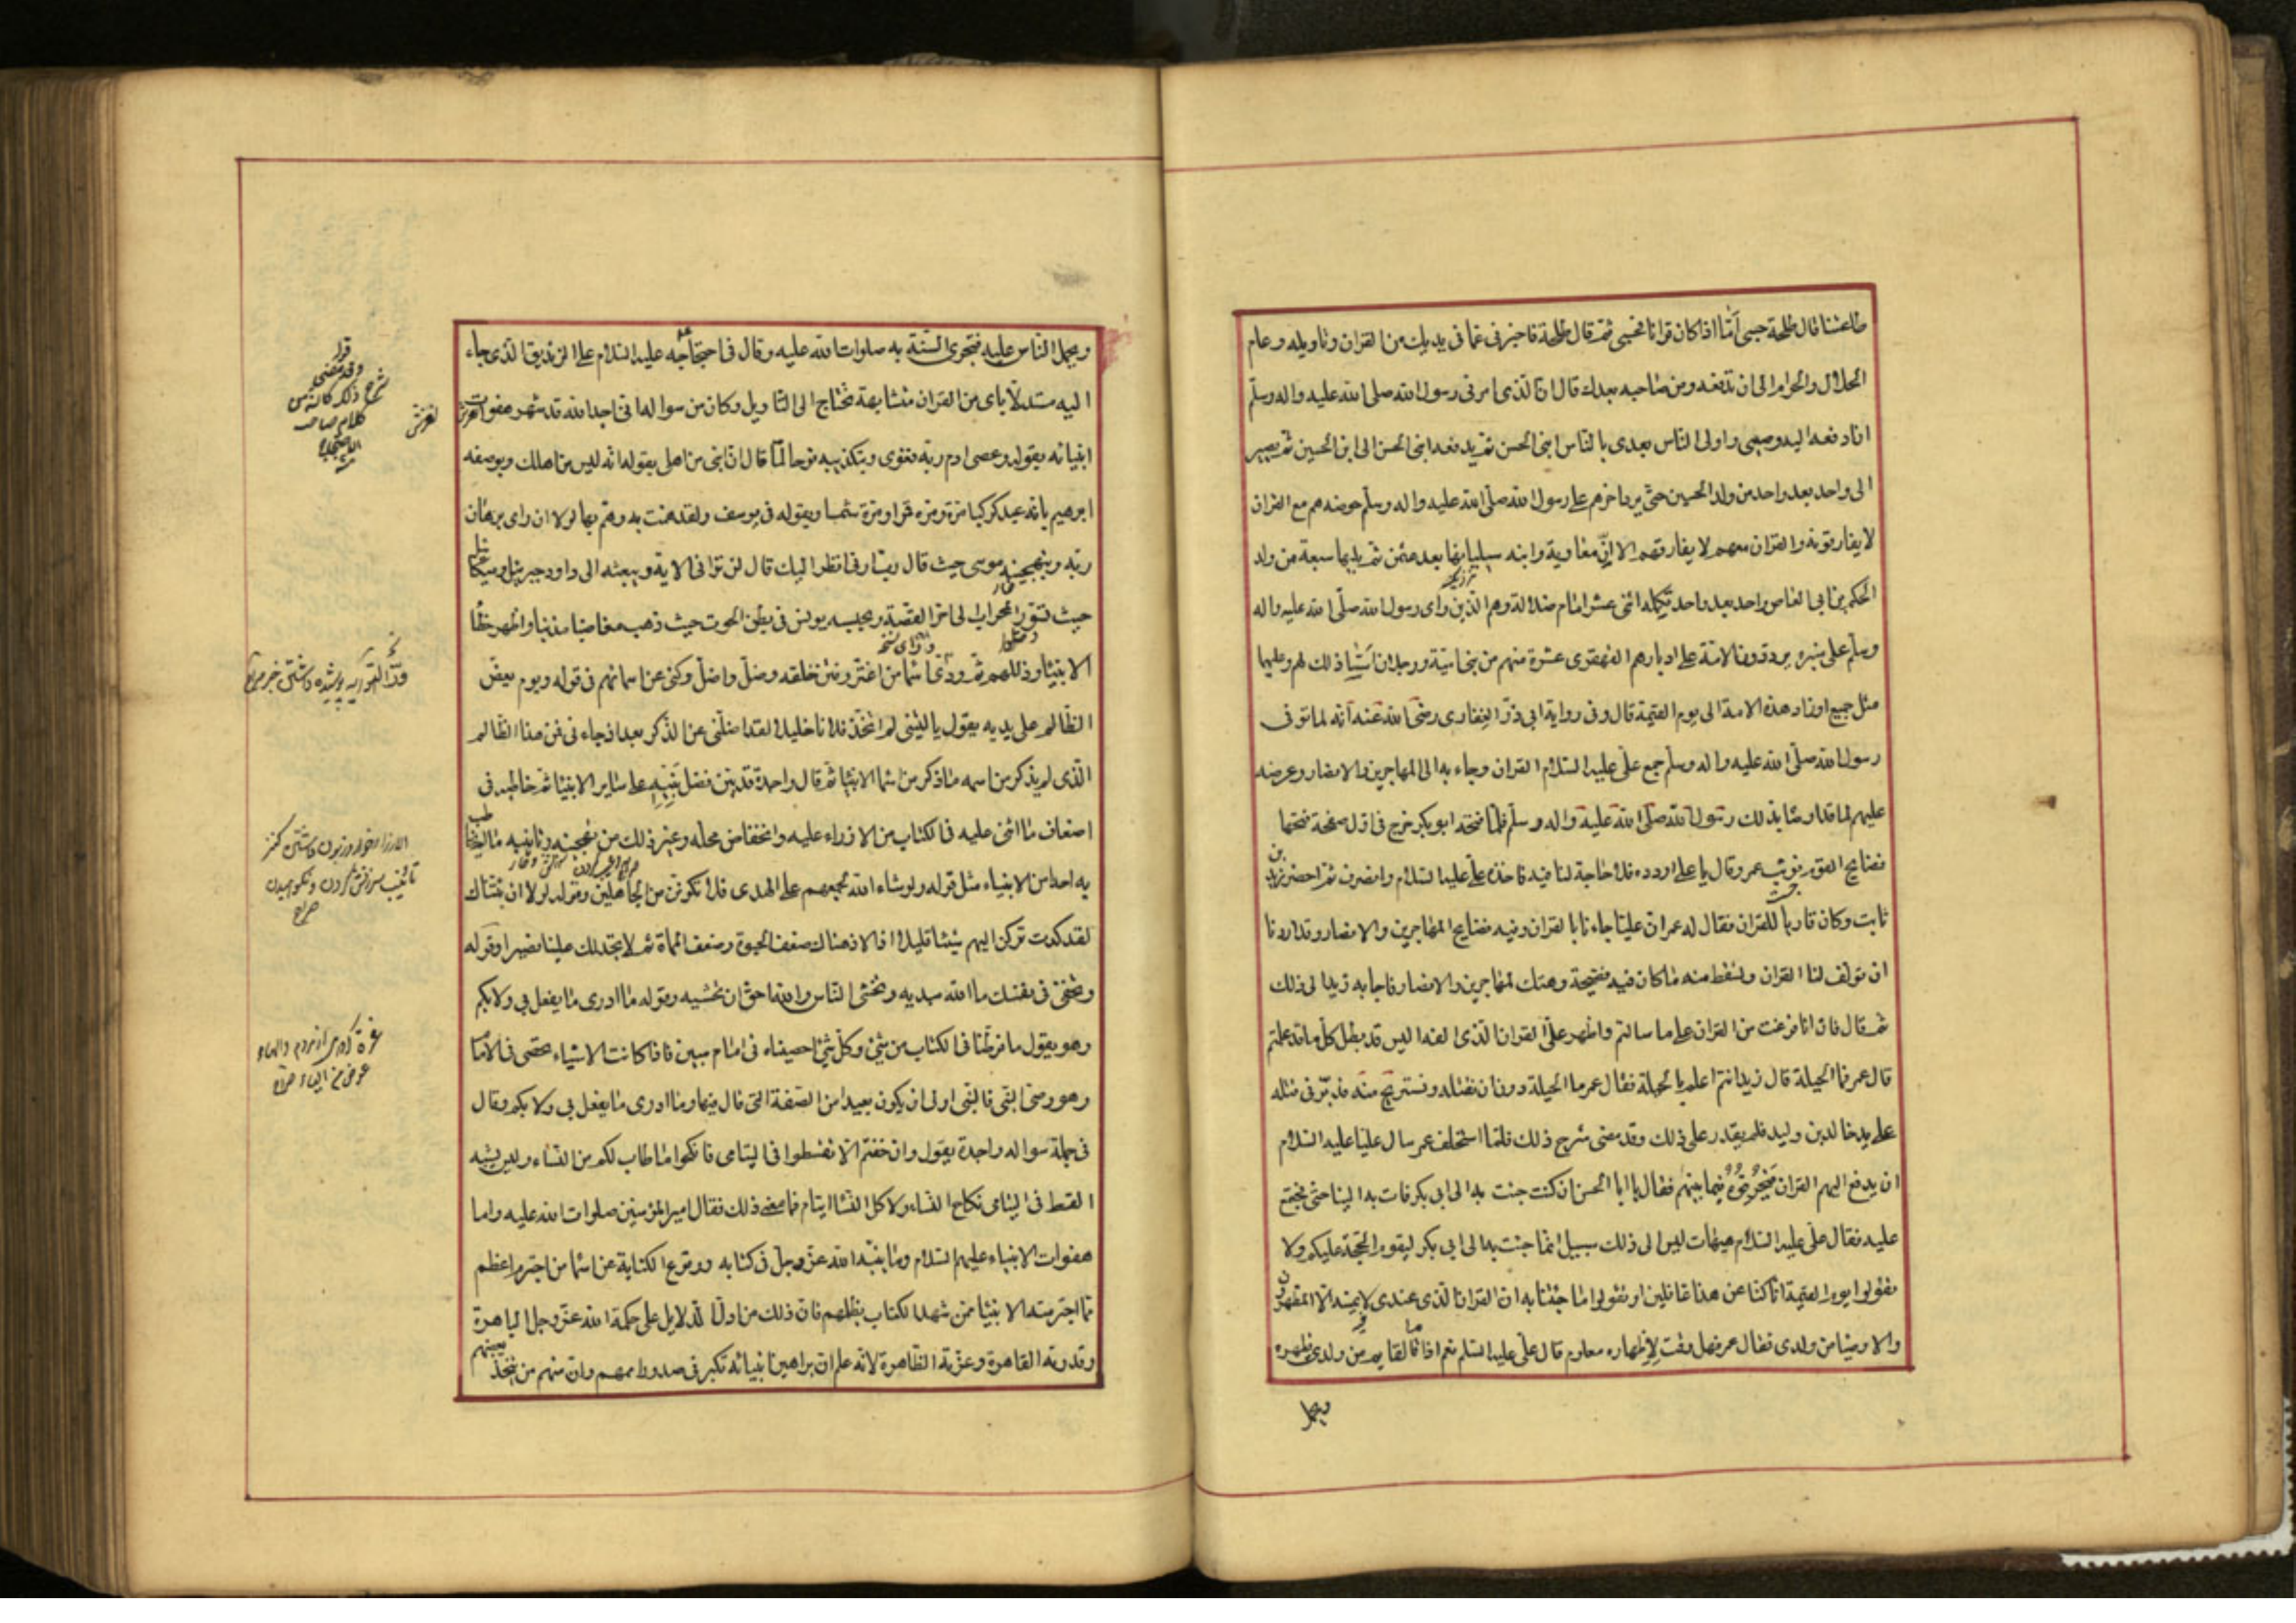 طاعتنا قال طلحة حسبي أمّا اذا كان قرانا فحسبي ثم قال طلحة فاخبرني عما في يديك من القران وتاويله وعلم
الحلال والحرام الى من تدفعه ومن صاحبه بعدك قال ان الذي امرني رسول الله صلى الله عليه واله وسلم
ان ادفعه اليه وصيي واولى الناس بعدي بالناس ابني الحسن ثم يدفعه ابني الحسن الى ابني الحسين ثم يصير
الى واحد بعد واحد من ولد الحسين حتى يرد اخرهم على رسول الله صلى الله عليه واله وسلم حوضه هم مع القران
لا يفارقونه والقران معهم لا يفارقهم الا انّ معاوية وابنه سيليانها بعد عثمن ثم يليها سبعة من ولد
الحكم بن ابي العاص واحد بعد واحد تكمله اثنى عشر امام ضلالة وهم الذين راى رسول الله صلى الله عليه واله
وسلم على منبره يردون الامة على ادبارهم القهقرى عشرة منهم من بني امية ورجلان اسّسا ذلك لهم وعليهما
مثل جميع اوزار هذه الامة الى يوم القيمة قال وفي رواية ابي ذرّ الغفاري رضي الله عنه انه لما توفى
رسول الله صلى الله عليه واله وسلم جمع علي عليه السلام القران وجاء به الى المهاجرين والانصار وعرضه
عليهم لما قد اوصاه بذلك رسول الله صلى الله عليه واله وسلم فلما فتحه ابو بكر خرج في اول صفحة فتحها
فضايح القوم فوثب عمر وقال يا علي اردده فلا حاجة لنا فيه فاخذه علي عليه السلام وانصرف ثم احضر زيد بن
ثابت وكان قارياً للقران فقال له عمر ان عليّا جاءنا بالقران وفيه فضايح المهاجرين والانصار وقد اردنا
ان تولف لنا القران وتسقط منه ما كان فيه فضيحة وهتك للمهاجرين والانصار فاجابه زيد الى ذلك
ثم قال فان انا فرغت من القران على ما سالتم واظهر عليّ القران الذي الفه اليس قد بطل كل ما قد عملتم
قال عمر فما الحيلة قال زيد انتم اعلم بالحيلة فقال عمر ما الحيلة دون ان نقتله ونستريح منه فدبّر في قتله
على يد خالد بن وليد فلم يقدر على ذلك وقد مضى شرح ذلك فلما استخلف عمر سال عليا عليه السلام
ان يدفع اليهم القران فيحرفوه فيما بينهم فقال يا ابا الحسن ان كنت جئت به الى ابي بكر فات به الينا حتى نجتمع
عليه فقال علي عليه السلام هيهات ليس الى ذلك سبيل انما جئت به الى ابي بكر ليقوم الحجة عليكم ولا
تقولوا يوم القيمة انا كنا عن هذا غافلين او تقولوا ما جئتنا به ان القران الذي عندي لا يمسه الا المطهرون
والاوصيا من ولدي فقال عمر فهل وقت لإظهاره معلوم قال علي عليه السلم نعم اذا قام القايم من ولدي يظهره
ويحمل
ويحمل الناس عليه فتجري السّنة به صلوات الله عليه وقال في احتجاجه عليه السلام على الزنديق الذي جاء
اليه مستدلّا باى من القران متشابهة تحتاج الى التاويل وكان من سواله اني اجد الله قد شهر هفوات
انبيائه بقوله وعصى ادم ربه فغوى وبتكذيبه نوحا لمّا قال ان ابني من اهلي بقوله انه ليس من اهلك وبوصفه
ابرهيم بانه عبد كوكبا مرّة ومرة قمرا ومرّة شمسا وبقوله في يوسف ولقد همت به وهمّ بها لولا ان راى برهان
ربه وبتهجينه موسى حيث قال رب ارني انظر اليك قال لن تراني الاية وببعثه الى داود جبرئيل وميكائيل
حيث تسوّروا المحراب الى اخر القصة وبحبسه يونس في بطن الحوت حيث ذهب مغاضبا مذنبا واظهر خطأ
الانبيا وزللهم ثم ورّى اسما من اغتر وفتن خلقه وضلّ واضلّ وكنى عن اسمائهم في قوله ويوم يعضّ
الظالم على يديه يقول يا ليتني لم اتخذ فلانا خليلا لقد اضلّني عن الذكر بعد اذ جاءني فمن هذا الظالم
الذي لم يذكر من اسمه ما ذكر من اسما الانبيا ثم قال واجده قد بيّن فضل نبيّه على ساير الانبيا ثم خاطبه في
اضعاف ما اثنى عليه في الكتاب من الازراء عليه وانخفاض محله وغير ذلك من تهجينه وتانيبه ما لم يخاطب
به احدا من الانبياء مثل قوله ولو شاء الله لجمعهم على الهدى فلا تكونن من الجاهلين وقوله لولا ان ثبتناك
لقد كدت تركن اليهم شيئا قليلا اذا لاذقناك ضعف الحيوة وضعف المماة ثم لا تجد لك علينا نصيرا وقوله
وتخفي في نفسك ما الله مبديه وتخشى الناس والله احق ان تخشيه وقوله ما ادرى ما يفعل بي ولا بكم
وهو يقول ما فرطنا في الكتاب من شئ وكل شئ احصيناه في امام مبين فاذا كانت الاشياء تحصى في الامام
وهو وصيّ النبي فالنبي اولى ان يكون بعيدا من الصفة التي قال فيها وما ادرى ما يفعل بي ولا بكم وقال
في جملة سواله واجده يقول وان خفتم الا تقسطوا في اليتامى فانكحوا ما طاب لكم من النساء وليس يشبه
القسط في اليتامى نكاح النساء ولا كل النسا ايتام فما معنى ذلك فقال امير المؤمنين صلوات الله عليه واما
هفوات الانبياء عليهم السلام وما بيّنه الله عز وجل في كتابه ووقوع الكناية عن اسما من اجترم اعظم
مما اجترمته الانبيا ممن شهد الكتاب بظلمهم فان ذلك من ادل الدلايل على حكمة الله عز وجل الباهرة
وقدرته القاهرة وعزته الظاهرة لانه علم ان براهين انبيائه تكبر في صدور اممهم وان منهم من يتخذ بعضهم
وقد مضى
شرح ذلك كانه من
كلام صاحب
لغزش